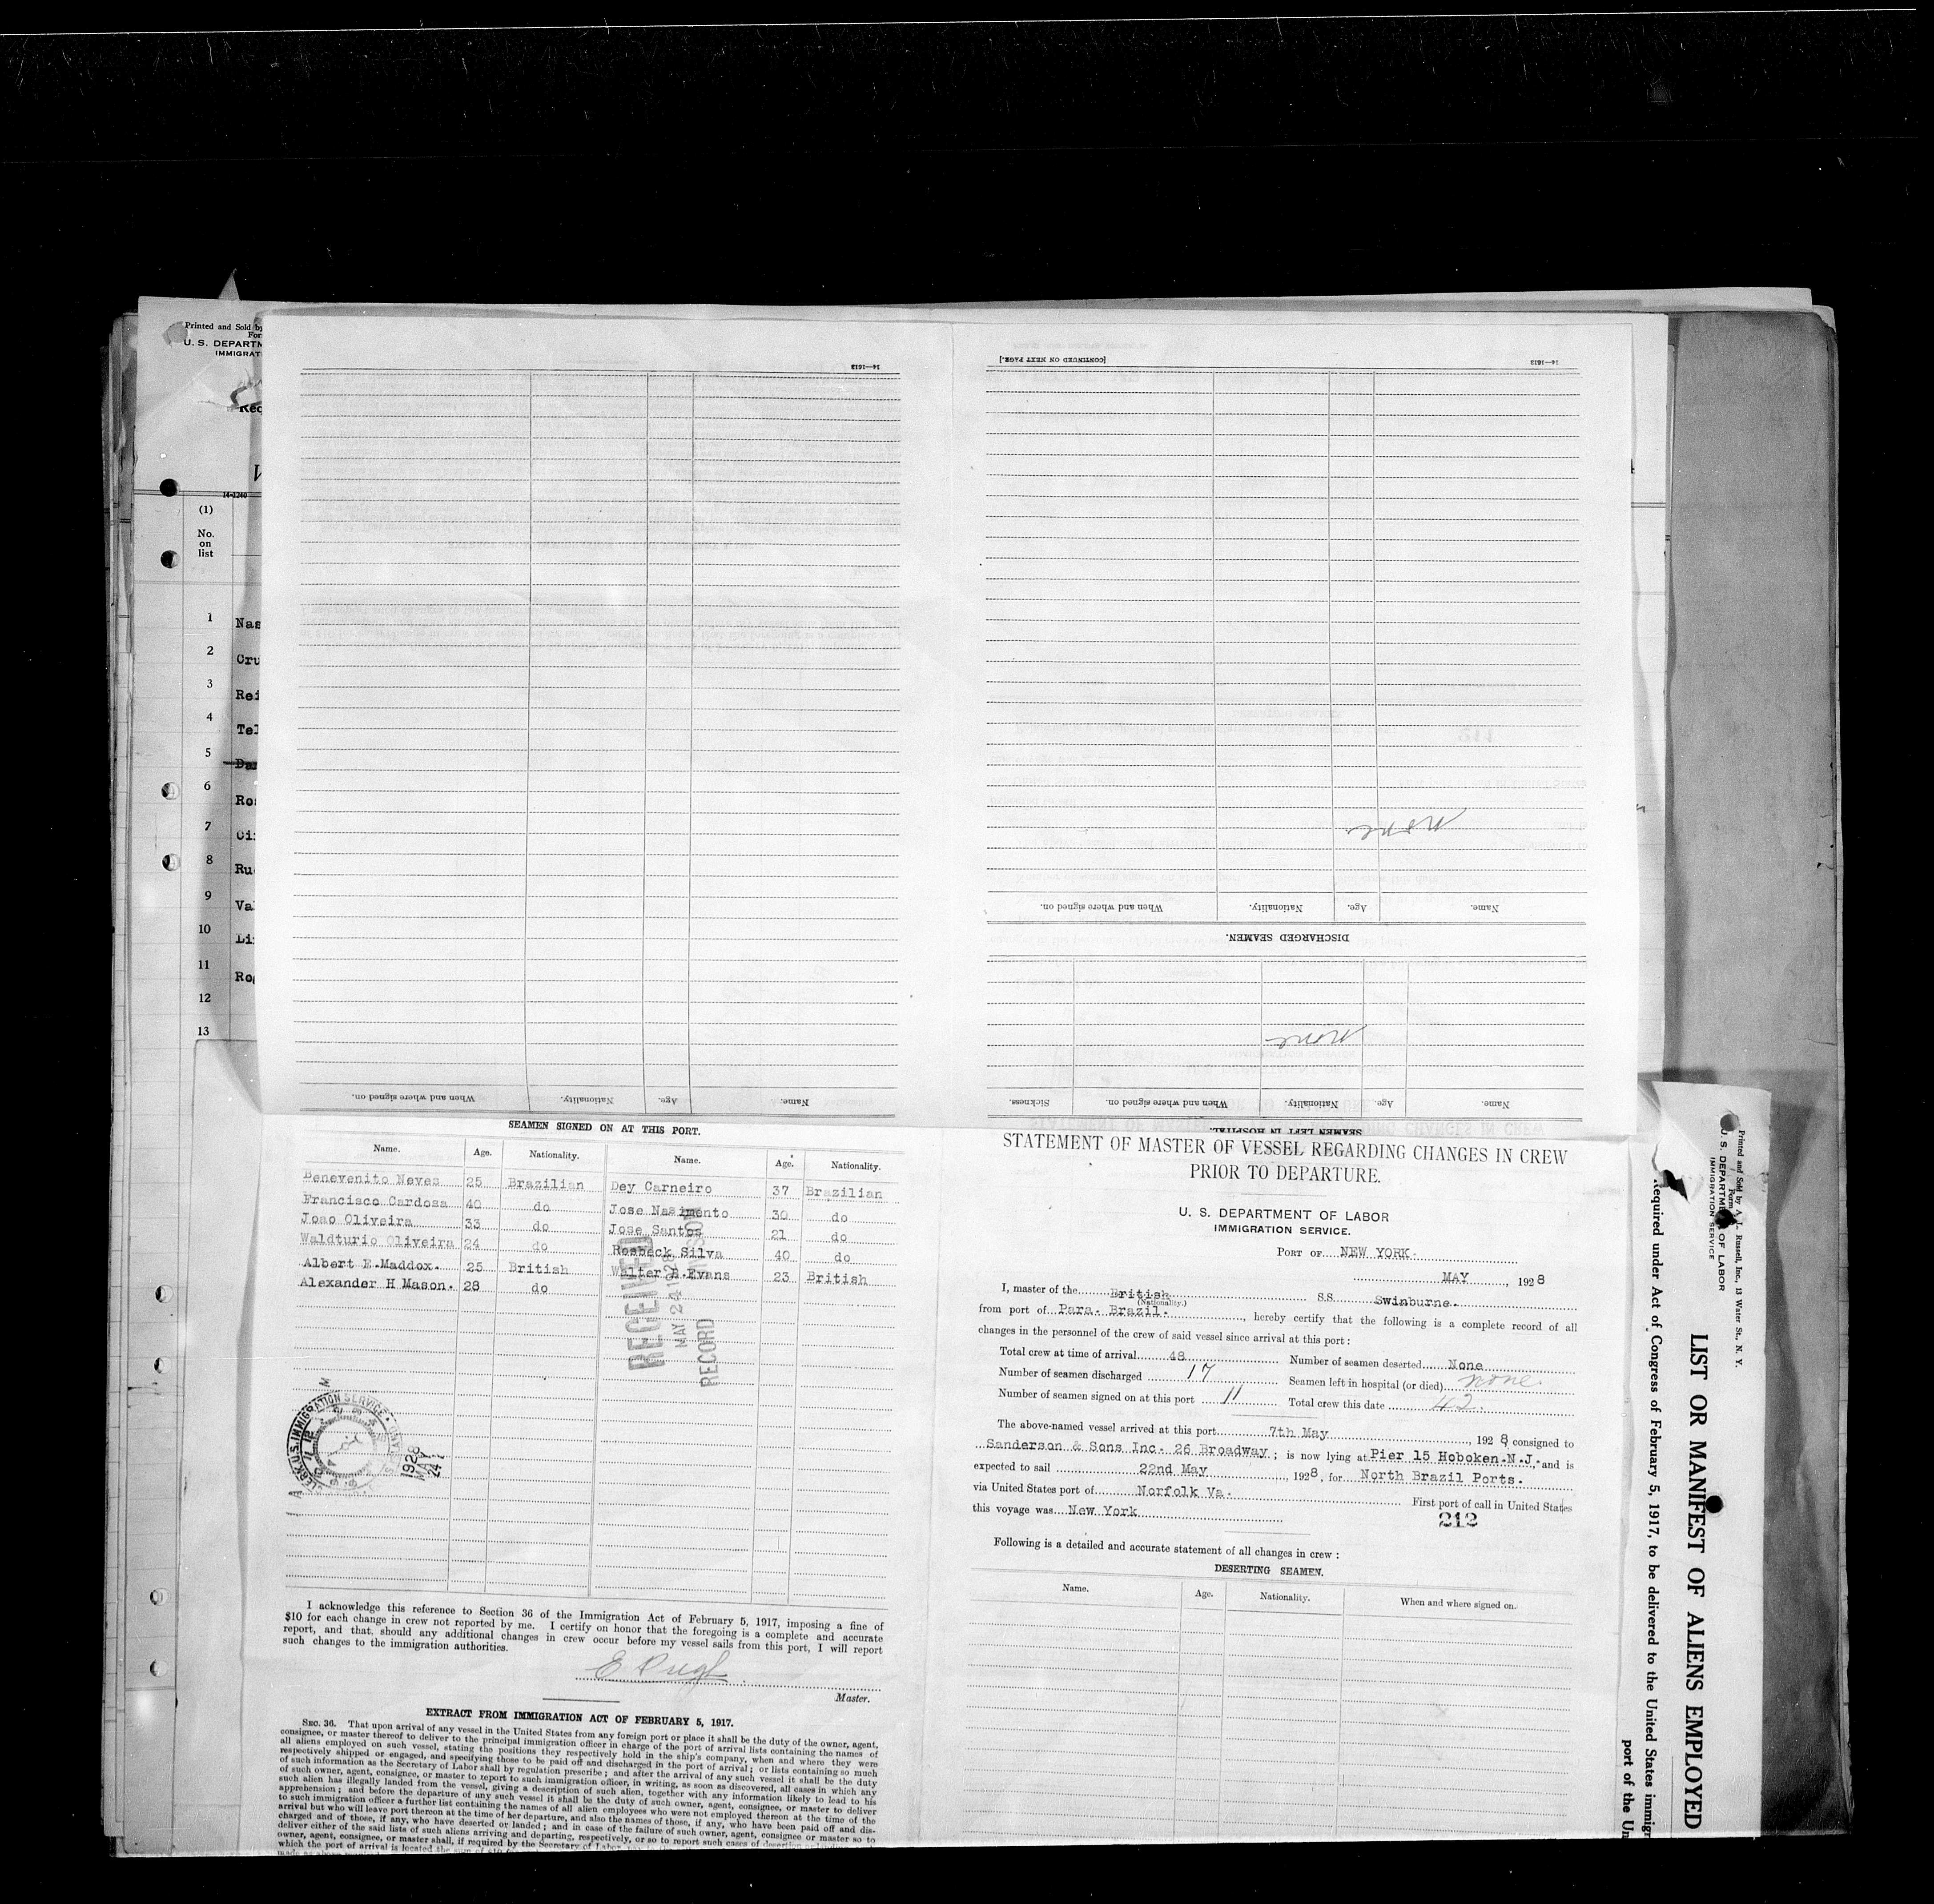 Printed and Sold by
For
U. S. DEPARTM
IMMIGRAT
Req
14-1240
(1)
No.
on
list
1 Nas
2 Cru
3 Rei
4 Tel
5 Dam
6 Ros
7 Ci
8 Ru
9 Va
10 Li
11 Ro
12
13
14—1613
When and where signed on. Nationality. Age. Name.
[CONTINUED ON NEXT PAGE.] 14—1613
none
When and where signed on. Nationality. Age. Name.
DISCHARGED SEAMEN.
none
Sickness. When and where signed on. Nationality. Age. Name.
SEAMEN LEFT IN HOSPITAL.
SEAMEN SIGNED ON AT THIS PORT.
Name. Age. Nationality. Name. Age. Nationality.
Benevenito Neves 25 Brazilian Dey Carneiro 37 Brazilian
Francisco Cardosa 40 do Jose Nasimento 30 do
Joao Oliveira 33 do Jose Santos 21 do
Waldturio Oliveira 24 do Rosbeck Silva 40 do
Albert E.Maddox. 25 British Walter H.Evans 23 British
Alexander H Mason. 28 do
RECEIVED
MAY 24 1928
RECORD
U.S. IMMIGRATION SERVICE
1928
MAY
24
I acknowledge this reference to Section 36 of the Immigration Act of February 5, 1917, imposing a fine of
$10 for each change in crew not reported by me. I certify on honor that the foregoing is a complete and accurate
report, and that, should any additional changes in crew occur before my vessel sails from this port, I will report
such changes to the immigration authorities.
E Pugh
Master.
EXTRACT FROM IMMIGRATION ACT OF FEBRUARY 5, 1917.
SEC. 36. That upon arrival of any vessel in the United States from any foreign port or place it shall be the duty of the owner, agent,
consignee, or master thereof to deliver to the principal immigration officer in charge of the port of arrival lists containing the names of
all aliens employed on such vessel, stating the positions they respectively hold in the ship's company, when and where they were
respectively shipped or engaged, and specifying those to be paid off and discharged in the port of arrival; or lists containing so much
of such information as the Secretary of Labor shall by regulation prescribe; and after the arrival of any such vessel it shall be the duty
of such owner, agent, consignee, or master to report to such immigration officer, in writing, as soon as discovered, all cases in which any
such alien has illegally landed from the vessel, giving a description of such alien, together with any information likely to lead to his
apprehension; and before the departure of any such vessel it shall be the duty of such owner, agent, consignee, or master to deliver
to such immigration officer a further list containing the names of all alien employees who were not employed thereon at the time of the
arrival but who will leave port thereon at the time of her departure, and also the names of those, if any, who have been paid off and dis-
charged and of those, if any, who have deserted or landed; and in case of the failure of such owner, agent, consignee or master so to
deliver either of the said lists of such aliens arriving and departing, respectively, or so to report such cases of desertion or landing
owner, agent, consignee, or master shall, if required by the Secretary of Labor,
which the port of arrival is located the sum of $10
STATEMENT OF MASTER OF VESSEL REGARDING CHANGES IN CREW
PRIOR TO DEPARTURE.
U. S. DEPARTMENT OF LABOR
IMMIGRATION SERVICE.
PORT OF NEW YORK.
MAY, 1928
I, master of the British S.S. Swinburne.
(Nationality.)
from port of Para. Brazil., hereby certify that the following is a complete record of all
changes in the personnel of the crew of said vessel since arrival at this port:
Total crew at time of arrival 48 Number of seamen deserted None
Number of seamen discharged 17 Seamen left in hospital (or died) none.
Number of seamen signed on at this port 11 Total crew this date 42.
The above-named vessel arrived at this port 7th May, 1928, consigned to
Sanderson & Sons Inc. 26 Broadway; is now lying at Pier 15 Hoboken.N.J., and is
expected to sail 22nd May, 1928, for North Brazil Ports.
via United States port of Norfolk Va. First port of call in United States
this voyage was New York
212
Following is a detailed and accurate statement of all changes in crew:
DESERTING SEAMEN.
Name. Age. Nationality. When and where signed on.
Printed and Sold by A. J. Russell, Inc., 13 Water St., N. Y.
Form
U. S. DEPARTMENT OF LABOR
IMMIGRATION SERVICE
LIST OR MANIFEST OF ALIENS EMPLOYED
Required under Act of Congress of February 5, 1917, to be delivered to the United States immigr
port of the Un